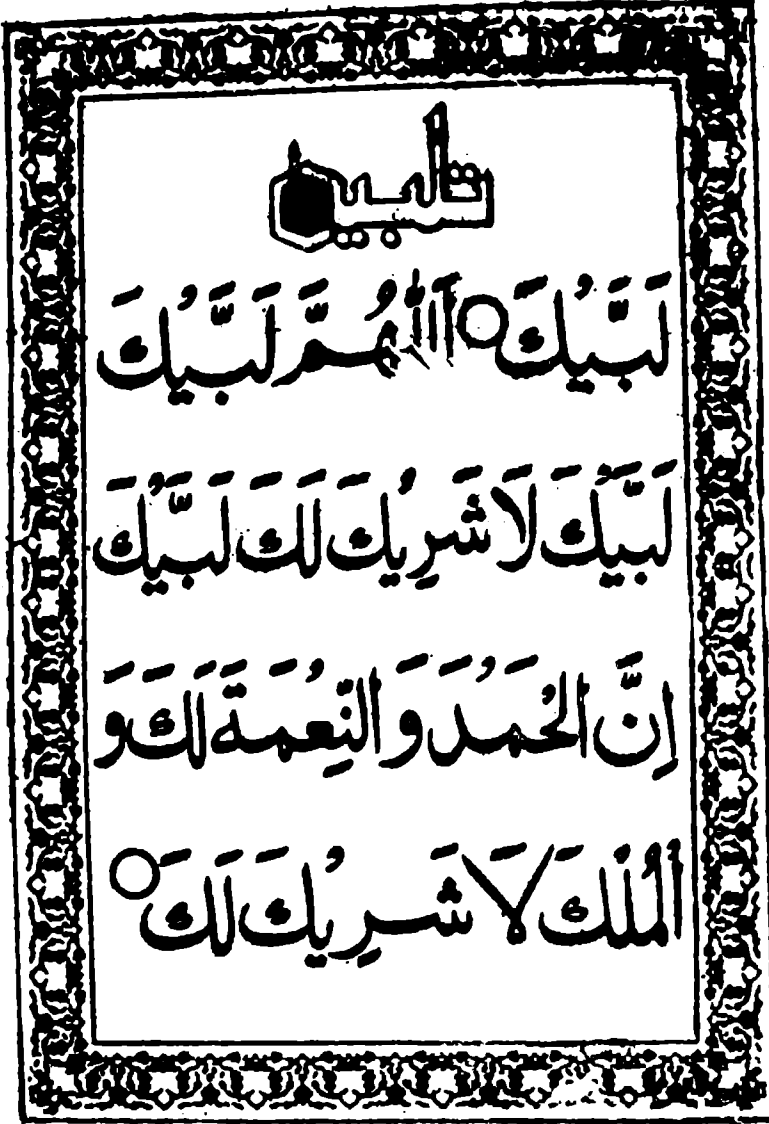 تلبیہ
لَبَّيْكَ ○ اَللّٰهُمَّ لَبَّيْكَ
لَبَّيْكَ لَا شَرِيْكَ لَكَ لَبَّيْكَ
اِنَّ الْحَمْدَ وَ النِّعْمَةَ لَكَ وَ
الْمُلْكَ لَا شَرِيْكَ لَكَ ○